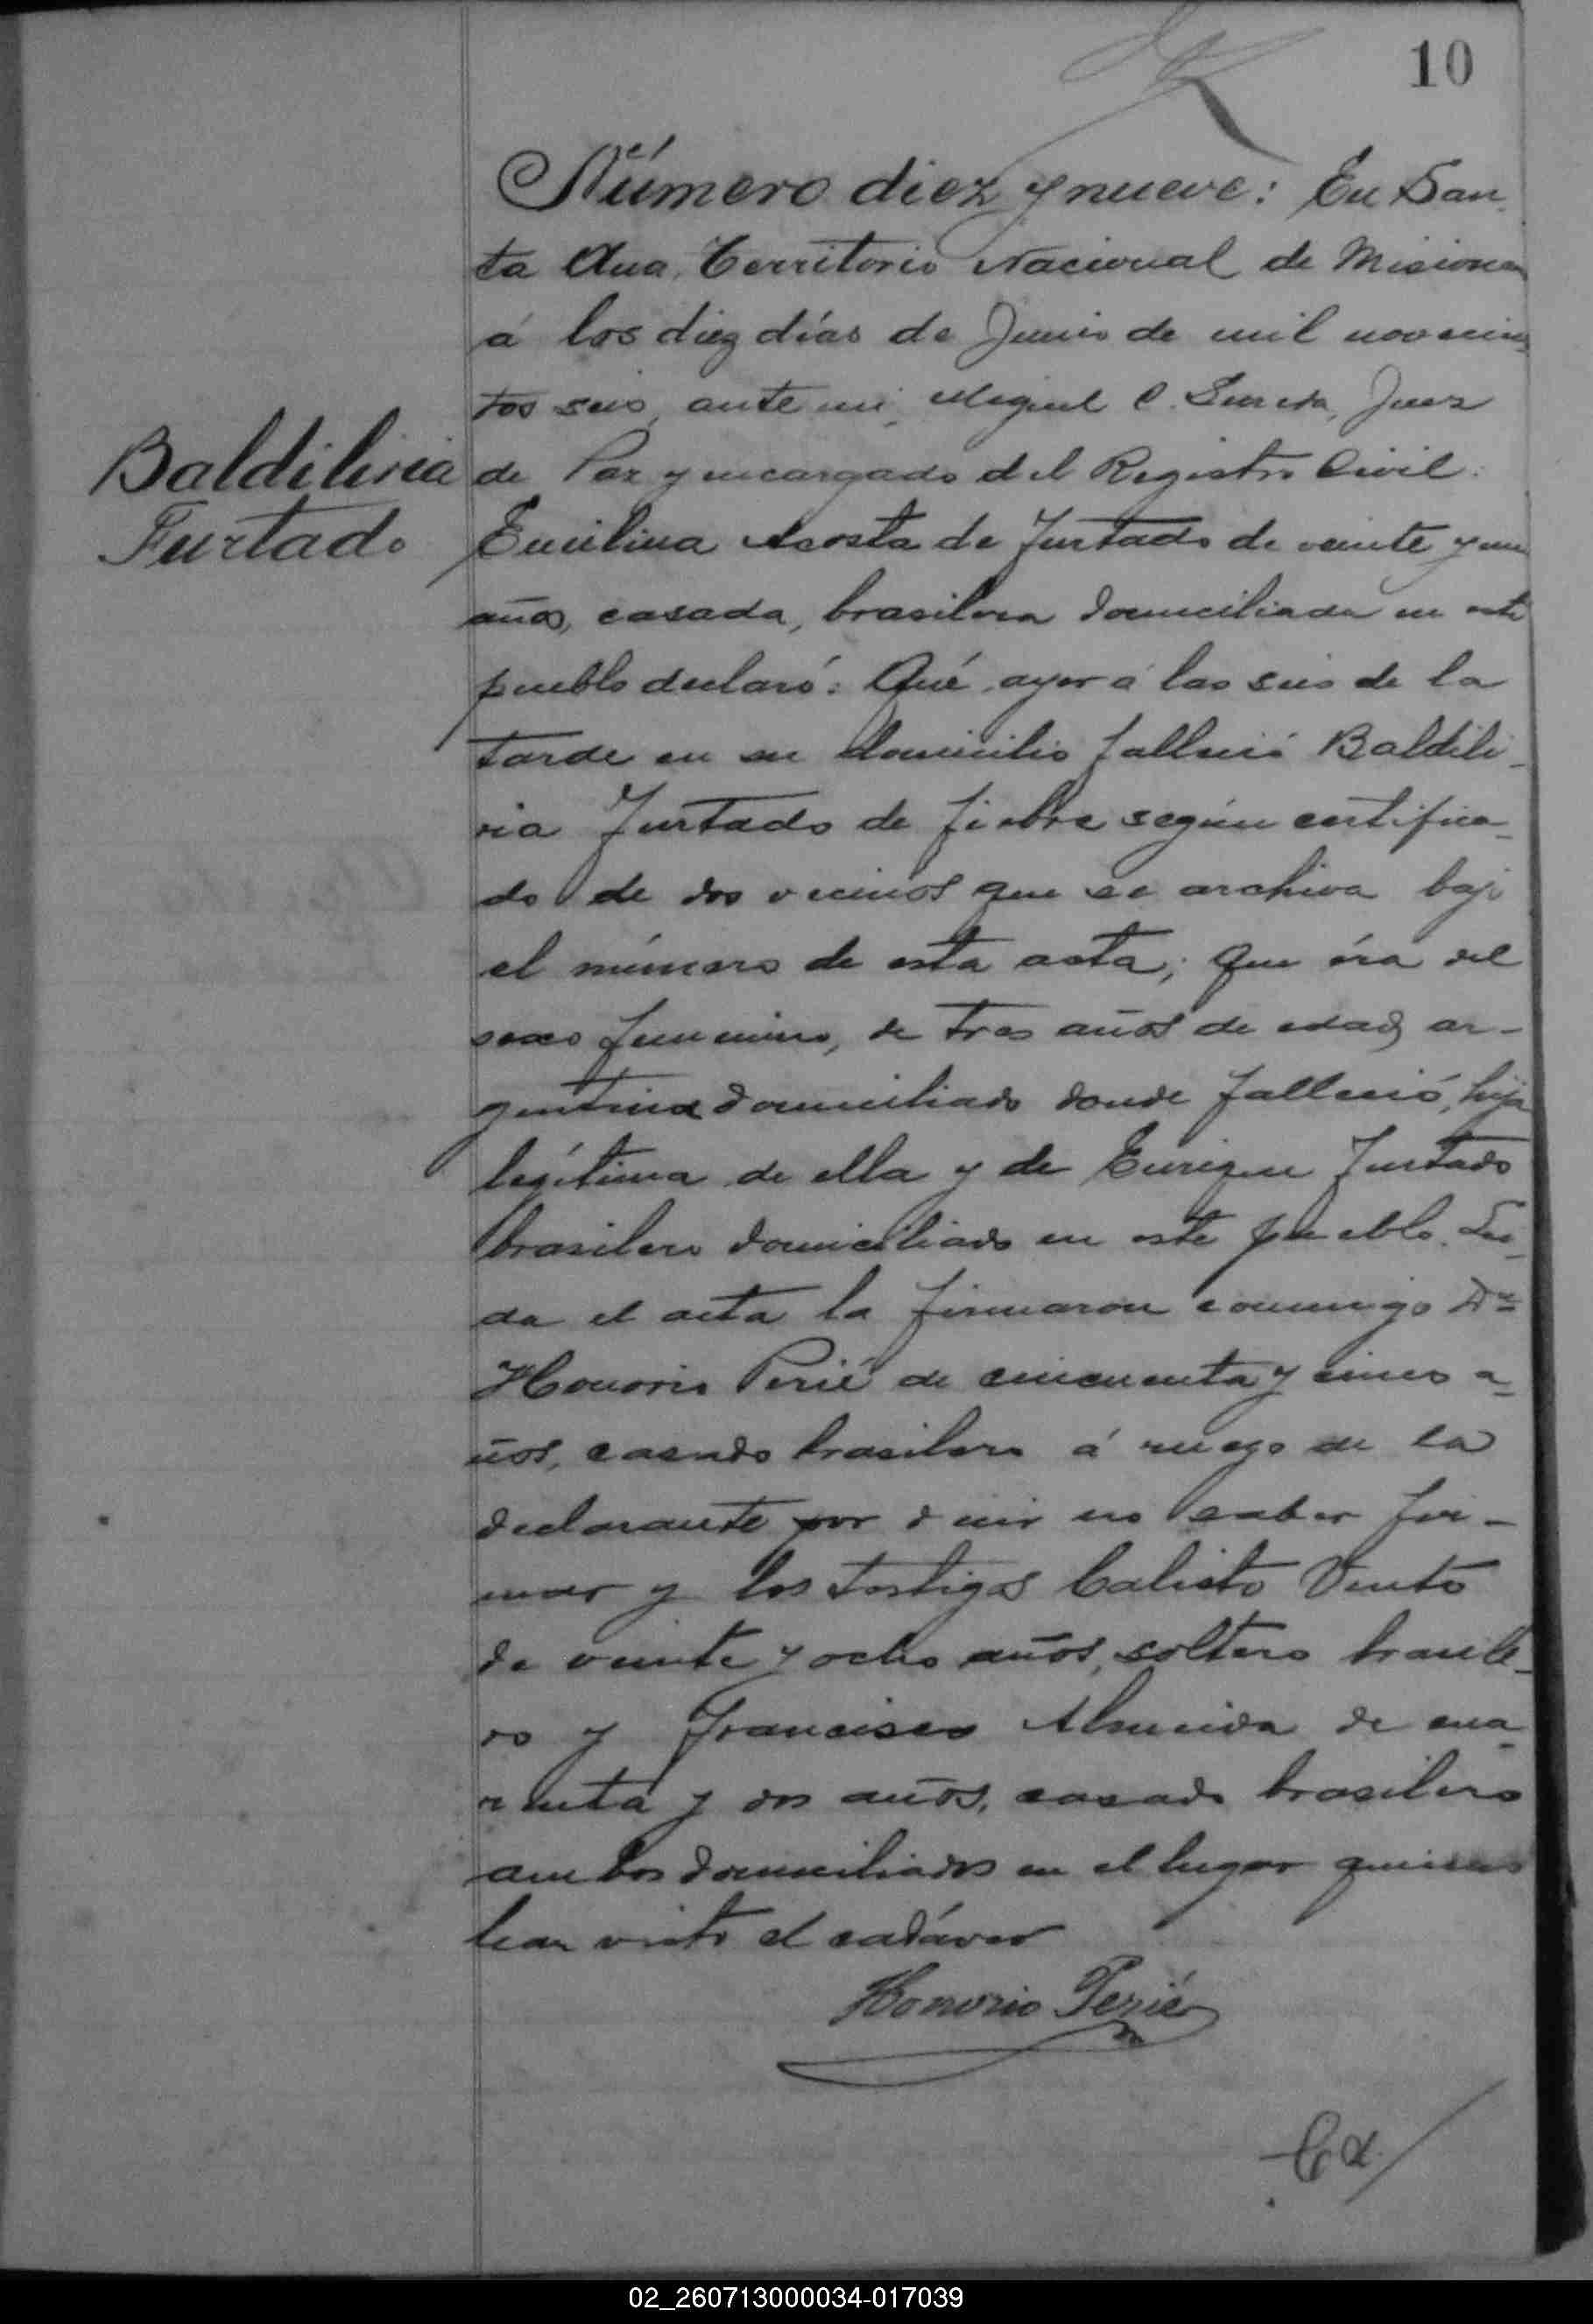 10
Número diez y nueve: En San
ta Ana, Territorio Nacional de Misiones
á los diez días de Junio de mil novecien
tos seis, ante mi, Miguel C. Juez
de Paz y encargado del Registro Civil:
Baldiliria
Furtado
Emilina Acosta de Furtado de veinte y un
años, casada, brasilera domiciliada en este
pueblo declaró: Qué ayer á las seis de la
tarde en su domicilio falleció Baldili-
ria Furtado de fiebre según certifica-
do de dos vecinos que se archiva bajo
el número de esta acta; que éra del
sexo femenino, de tres años de edad, ar-
gentina domiciliado donde falleció, hija
legítima de ella y de Enrique Furtado
brasilero domiciliado en este pueblo. Leí-
da el acta la firmaron conmigo Dn
Honorio Perié de cincuenta y cinco a-
ños, casado brasilero á ruego de la
declarante por decir no saber fir-
mar y los testigos Calisto Vento
de veinte y ocho años, soltero brasile-
ro y Francisco Almeida de cua-
renta y dos años, casado brasilero
ambos domiciliados en el lugar quienes
han visto el cadáver
Honorio Perié
02_260713000034-017039